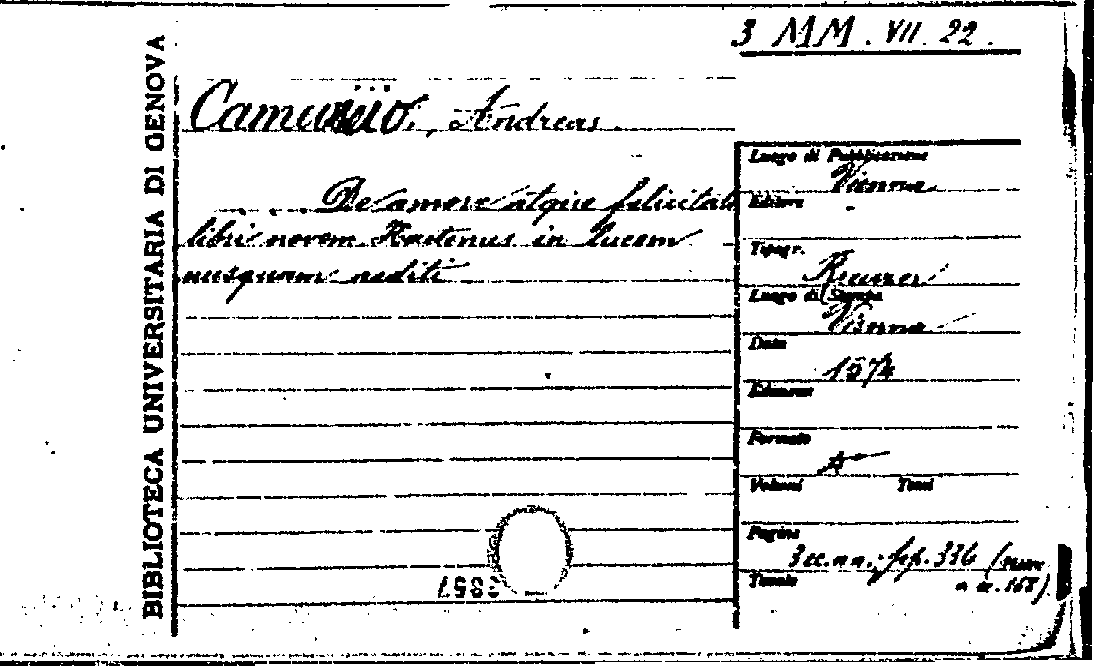 3 MM. VII. 22.
BIBLIOTECA UNIVERSITARIA DI GENOVA
Andreas.
De amore atque felicitate
libri novem Hactenus in lucem
nusquam aediti
Luogo di Pubblicazione
Vienna
Editore
Tipogr.
Luogo di Stampa
Vienna
Data
1574
Edizione
Formato
Volumi Tomi
Pagine
3 cc. nn.; pp. 336 (num
Tavole
n cc. 168).